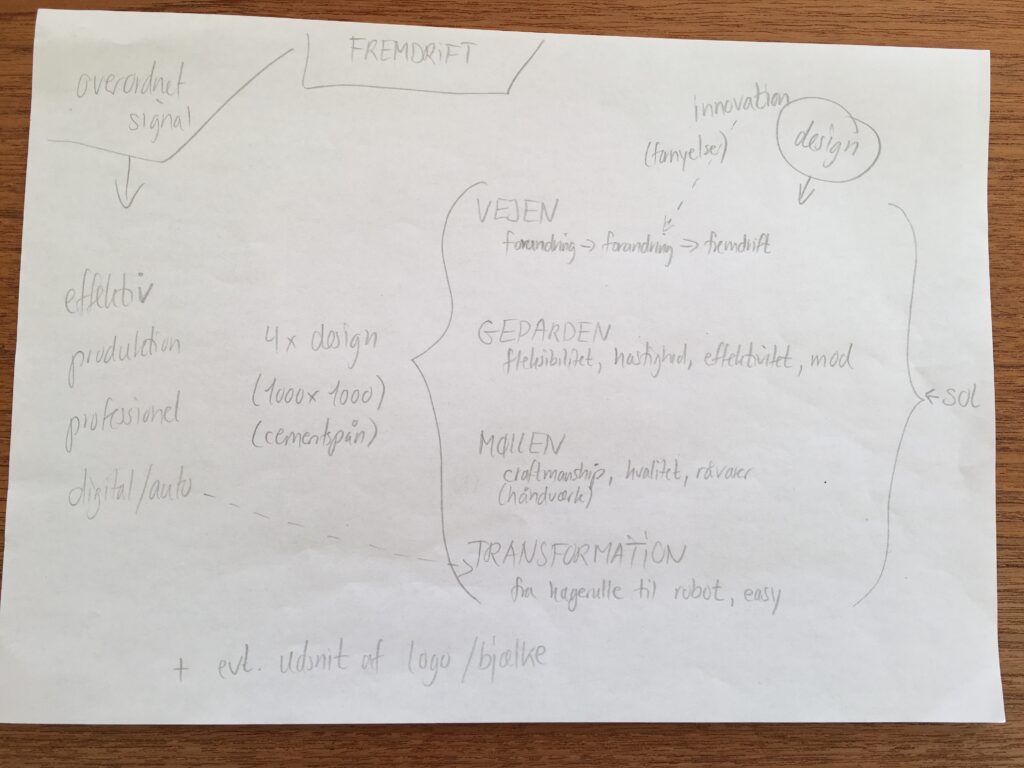 FREMDRIFT
overordnet
signal
innovation
(fornyelse)
design
VEJEN
forandring → forandring → fremdrift
effektiv
produktion
professionel
digital/auto
4x design
(1000 x 1000)
(cementspån)
GEPARDEN
fleksibilitet, hastighed, effektivitet, mod
← SOL
MØLLEN
craftmanship, kvalitet, råvarer
(håndværk)
TRANSFORMATION
fra kagerulle til robot, easy
+ evt. udsnit af logo/bjælke